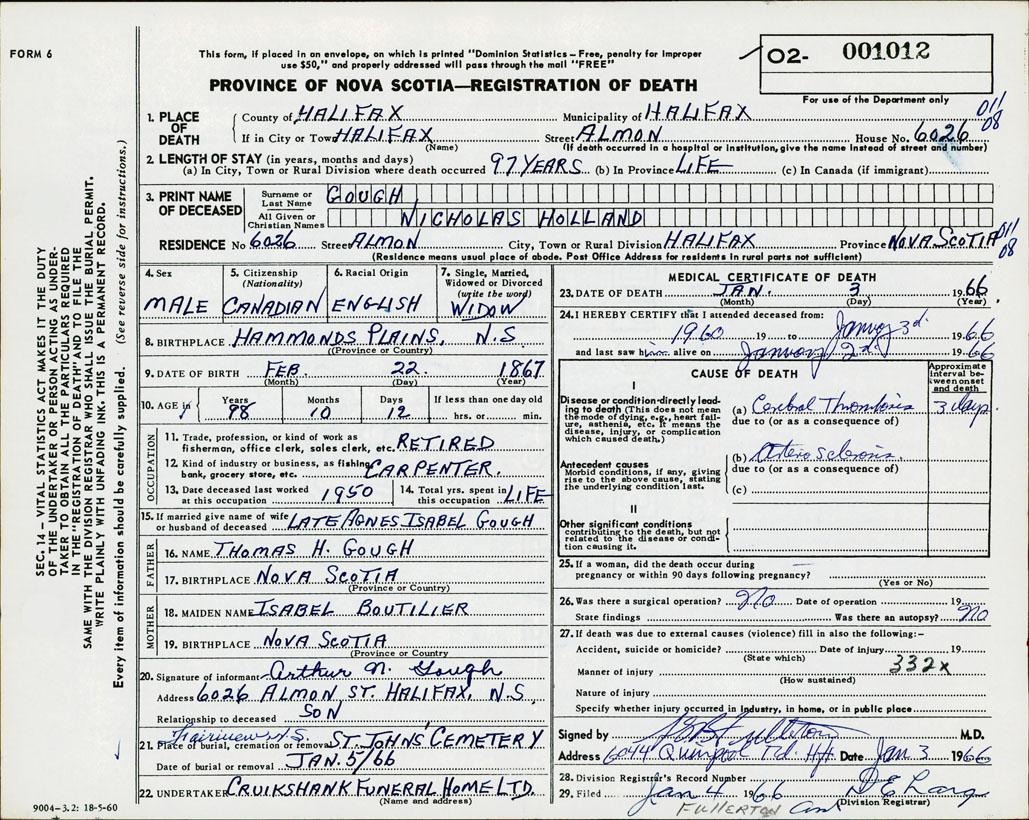 FORM 6
This form, if placed in an envelope, on which is printed "Dominion Statistics – Free, penalty for improper
use $50," and properly addressed will pass through the mail "FREE"
PROVINCE OF NOVA SCOTIA—REGISTRATION OF DEATH
02- 001012
For use of the Department only
SEC. 14 – VITAL STATISTICS ACT MAKES IT THE DUTY
OF THE UNDERTAKER OR PERSON ACTING AS UNDER-
TAKER TO OBTAIN ALL THE PARTICULARS REQUIRED
IN THE "REGISTRATION OF DEATH" AND TO FILE THE
SAME WITH THE DIVISION REGISTRAR WHO SHALL ISSUE THE BURIAL PERMIT.
WRITE PLAINLY WITH UNFADING INK. THIS IS A PERMANENT RECORD.
Every item of information should be carefully supplied. (See reverse side for instructions.)
1. PLACE OF DEATH
County of HALIFAX Municipality of HALIFAX 011
08
If in City or Town HALIFAX Street ALMON House No. 6026
(Name) (If death occurred in a hospital or institution, give the name instead of street and number)
2. LENGTH OF STAY (in years, months and days)
(a) In City, Town or Rural Division where death occurred 97 YEARS (b) In Province LIFE (c) In Canada (if immigrant)
3. PRINT NAME OF DECEASED
Surname or Last Name GOUGH
All Given or Christian Names NICHOLAS HOLLAND
RESIDENCE No 6026 Street ALMON City, Town or Rural Division HALIFAX Province NOVA SCOTIA 011
08
(Residence means usual place of abode. Post Office Address for residents in rural parts not sufficient)
4. Sex
MALE
5. Citizenship (Nationality)
CANADIAN
6. Racial Origin
ENGLISH
7. Single, Married, Widowed or Divorced (write the word)
WIDOW
8. BIRTHPLACE HAMMONDS PLAINS, N.S
(Province or Country)
9. DATE OF BIRTH FEB 22 1867
(Month) (Day) (Year)
10. AGE in Years 98 Months 10 Days 12 If less than one day old
hrs. or min.
OCCUPATION
11. Trade, profession, or kind of work as
fisherman, office clerk, sales clerk, etc. RETIRED
12. Kind of industry or business, as fishing,
bank, grocery store, etc. CARPENTER.
13. Date deceased last worked at this occupation 1950
14. Total yrs. spent in this occupation LIFE
15. If married give name of wife or husband of deceased LATE AGNES ISABEL GOUGH
FATHER
16. NAME THOMAS H. GOUGH
17. BIRTHPLACE NOVA SCOTIA
(Province or Country)
MOTHER
18. MAIDEN NAME ISABEL BOUTILIER
19. BIRTHPLACE NOVA SCOTIA
(Province or Country)
20. Signature of informant Arthur N. Gough
Address 6026 ALMON ST. HALIFAX, N.S
Relationship to deceased SON
Fairview N.S.
21. Place of burial, cremation or removal ST. JOHNS' CEMETERY
Date of burial or removal JAN. 5/66
22. UNDERTAKER CRUIKSHANK FUNERAL HOME LTD.
(Name and address)
9004-3.2: 18-5-60
MEDICAL CERTIFICATE OF DEATH
23. DATE OF DEATH JAN. 3 1966
(Month) (Day) (Year)
24. I HEREBY CERTIFY that I attended deceased from:
1960 19 to January 3d. 1966
and last saw him alive on January 2d. 1966
CAUSE OF DEATH
Approximate interval between onset and death
I
Disease or condition directly lead-
ing to death (This does not mean
the mode of dying, e.g., heart fail-
ure, asthenia, etc. It means the
disease, injury, or complication
which caused death.)
(a) Cerebral Thrombosis 3 days
due to (or as a consequence of)
Antecedent causes
Morbid conditions, if any, giving
rise to the above cause, stating
the underlying condition last.
(b) Arterio sclerosis.
due to (or as a consequence of)
(c)
II
Other significant conditions
contributing to the death, but not
related to the disease or condi-
tion causing it.
25. If a woman, did the death occur during
pregnancy or within 90 days following pregnancy?
(Yes or No)
26. Was there a surgical operation? No Date of operation 19
State findings Was there an autopsy? No
27. If death was due to external causes (violence) fill in also the following:–
Accident, suicide or homicide? Date of injury 19
(State which)
Manner of injury 332x
(How sustained)
Nature of injury
Specify whether injury occurred in industry, in home, or in public place
Signed by M.D.
Address 6044 Quinpool Rd. Hfx Date Jan 3 1966
28. Division Registrar's Record Number
29. Filed Jan 4 1966
(Division Registrar)
FULLERTON